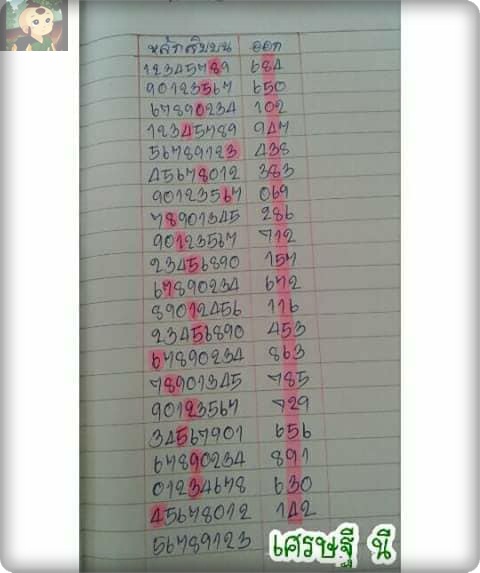 หลักสิบบน ออก
12345789 684
90123567 650
67890234 102
12345789 947
56789123 438
45678012 383
90123567 069
78901345 286
90123567 712
23456890 157
67890234 672
89012456 116
23456890 453
67890234 863
78901345 785
90123567 729
34567901 656
67890234 891
01234678 630
45678012 142
56789123
เศรษฐี นี